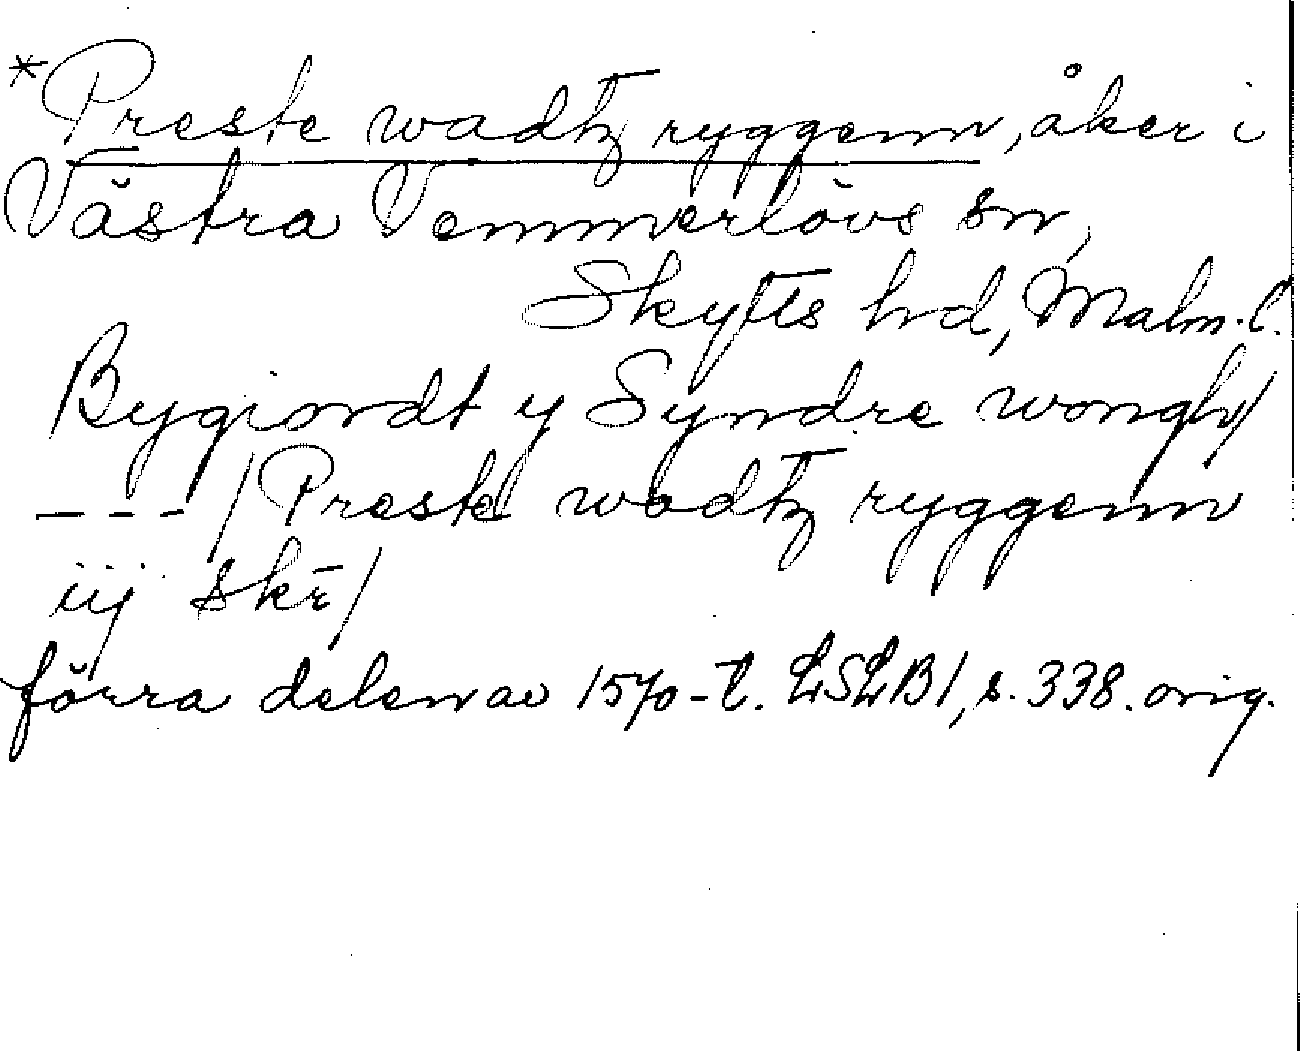 *Preste wadtz ryggenn, åker i
Västra Vemmerlövs sn,
Skytts hd, Malm. l.
Bygiordt y Syndre wongh/
_ _ _ _ / Preste wadtz ryggenn
iij skr̄/
förra delen av 1570-t. LSLB1, s. 338. orig.